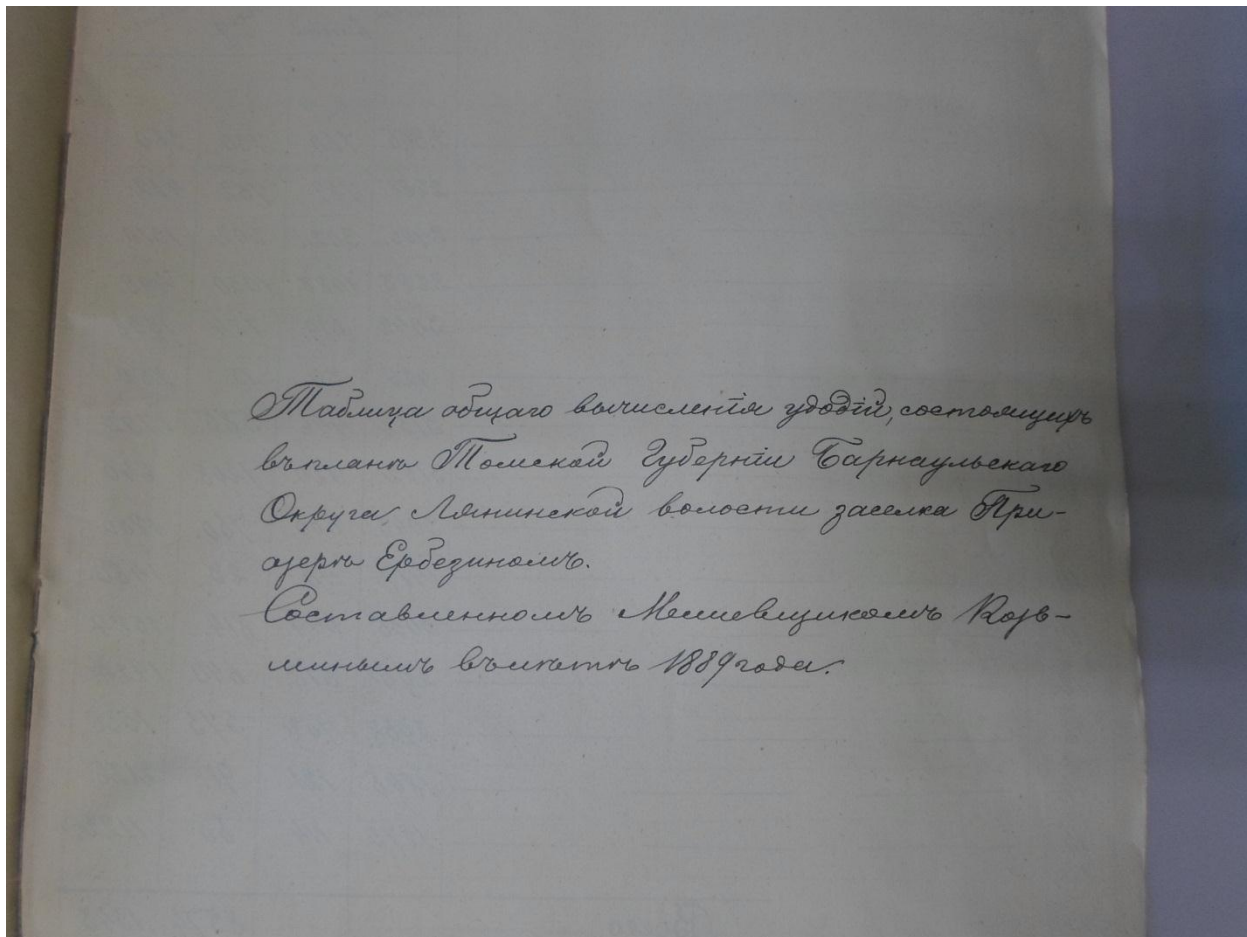 Таблица общаго вычисленія удобій, состоящихъ
въ планѣ Томской Губерніи Барнаульскаго
Округа Лянинской волости заселка При-
озерѣ Ербезиномъ.
Составленномъ Межевщикомъ Козь-
минымъ въ лѣтѣ 1889 года.